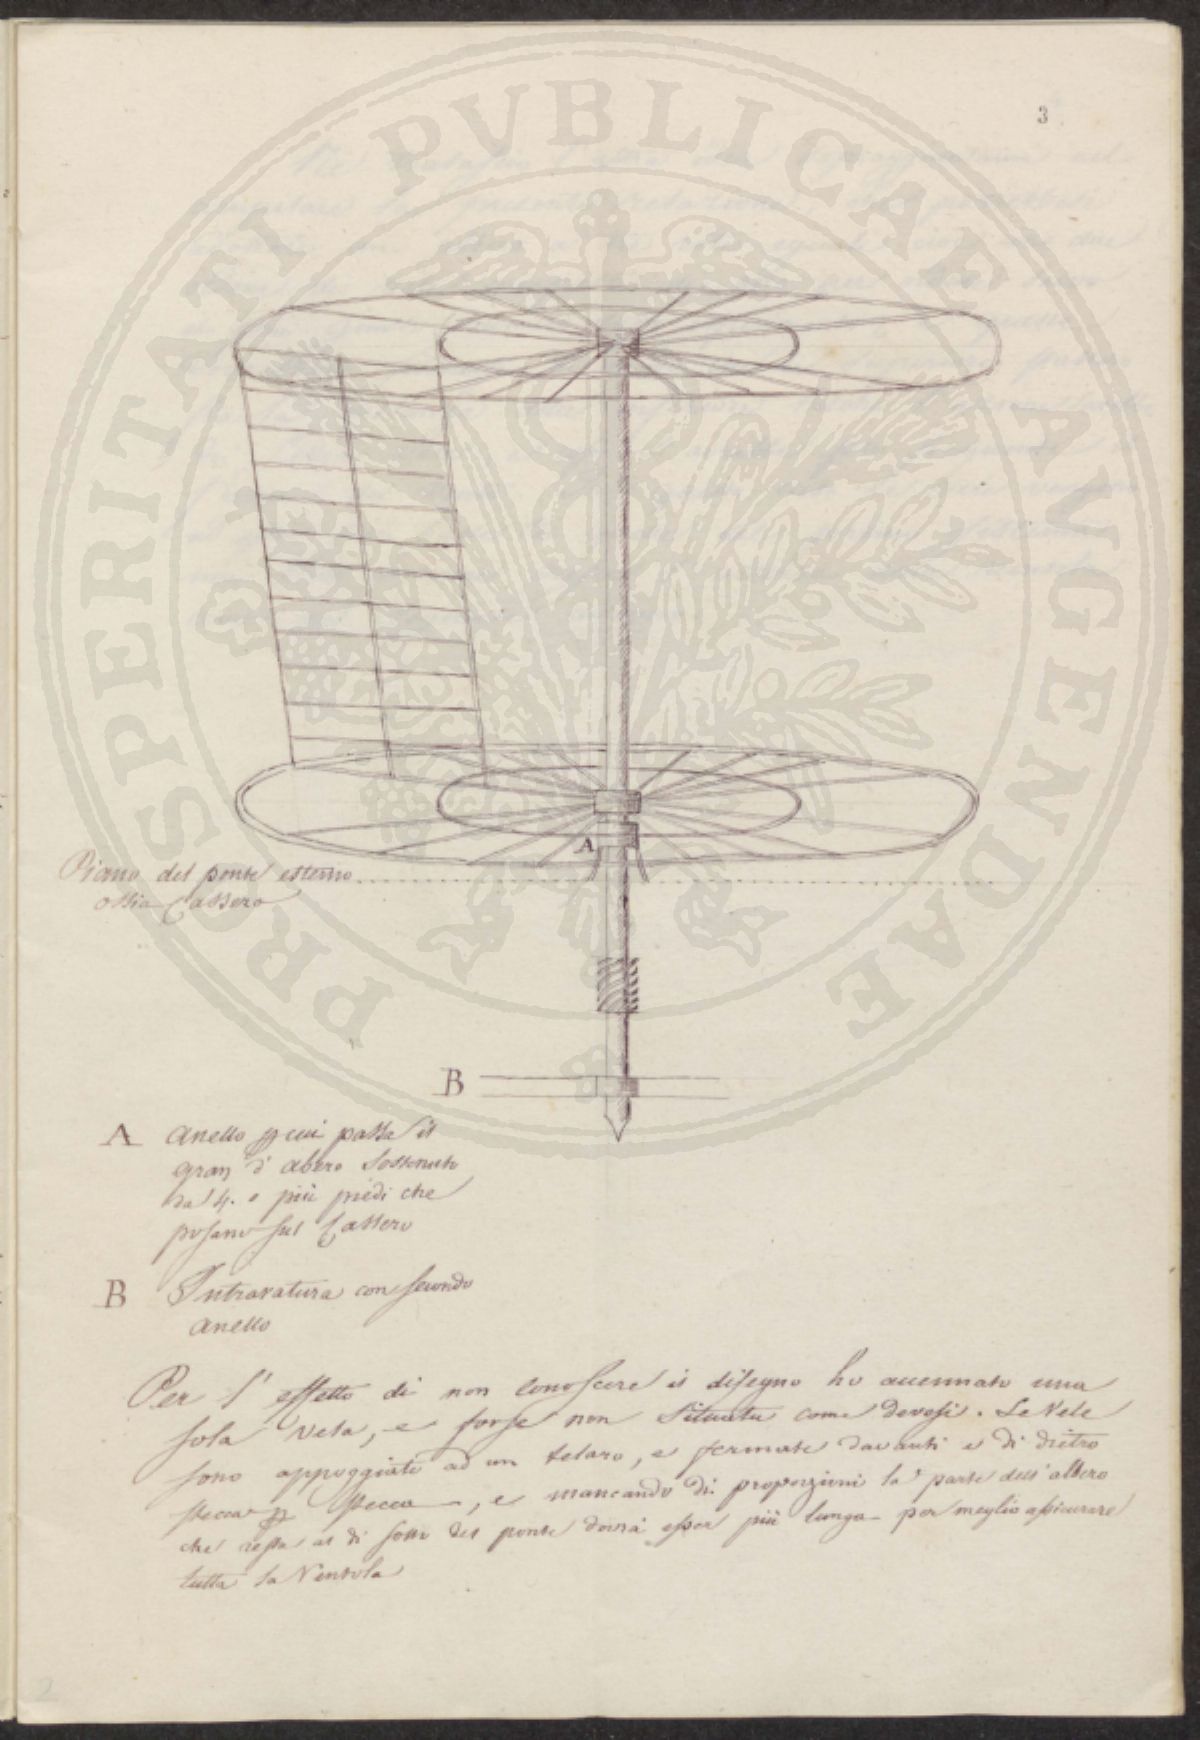 3
PROSPERITATI PVBLICAE AVGENDAE
A
Piano del ponte esterno
ossia Cassero
B
A Anello p cui passa il
gran d'abero sostenuto
da 4. o più piedi che
posano sul Cassero
B Intravatura con secondo
anello
Per l'effetto di non conoscere il disegno ho accennato una
sola vela, e forse non situata come devesi. Le Vele
sono appoggiate ad un telaro, e fermate davanti e di dietro
stecca p stecca, e mancando di proporzioni la parte dell'albero
che resta al di sotto del ponte dovrà esser più lunga per meglio assicurare
tutta la Ventola
2